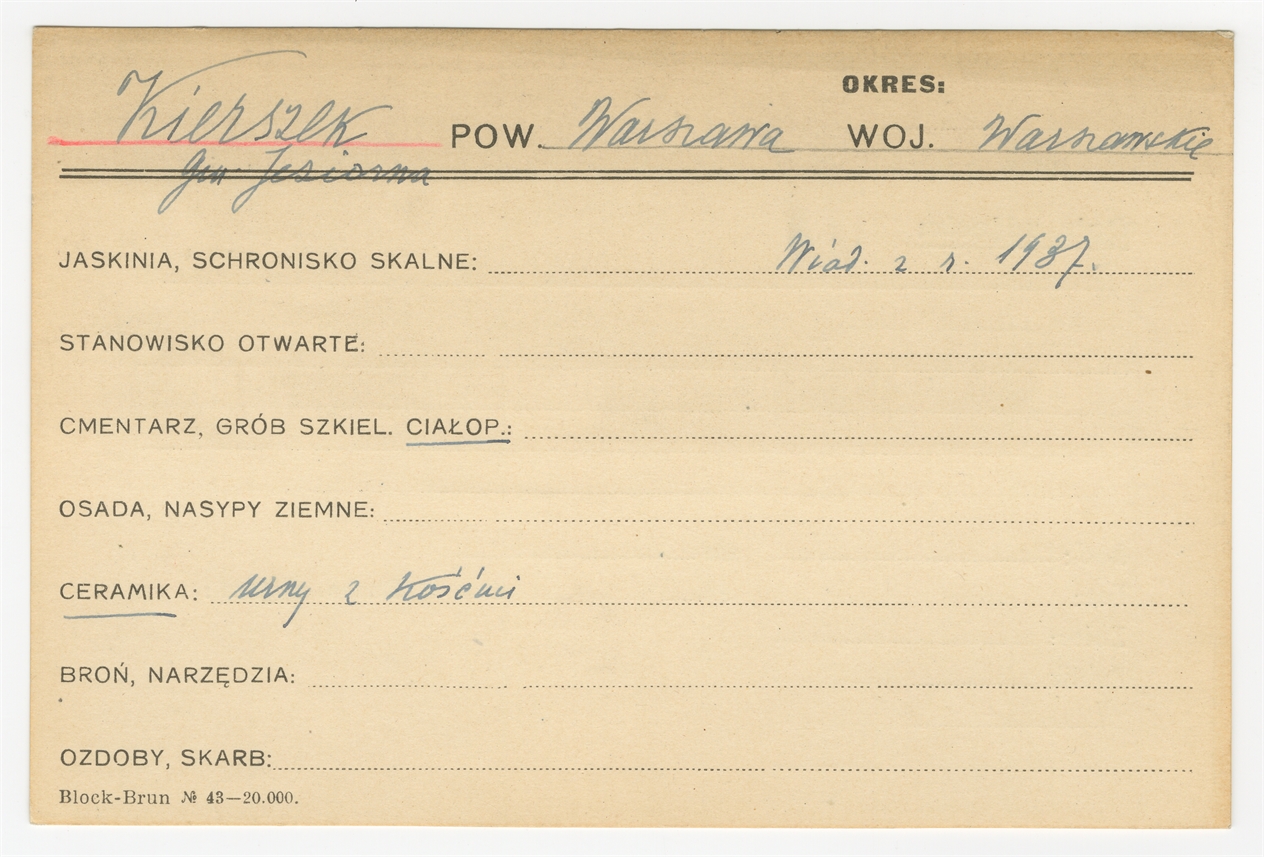 OKRES:
Kierszek POW. Warszawa WOJ. Warszawskie
gm. Jeziorna
JASKINIA, SCHRONISKO SKALNE: Wiad. z r. 1937.
STANOWISKO OTWARTE:
CMENTARZ, GRÓB SZKIEL. CIAŁOP.:
OSADA, NASYPY ZIEMNE:
CERAMIKA: urny z kośćmi
BROŃ, NARZĘDZIA:
OZDOBY, SKARB:
Block-Brun № 43—20.000.